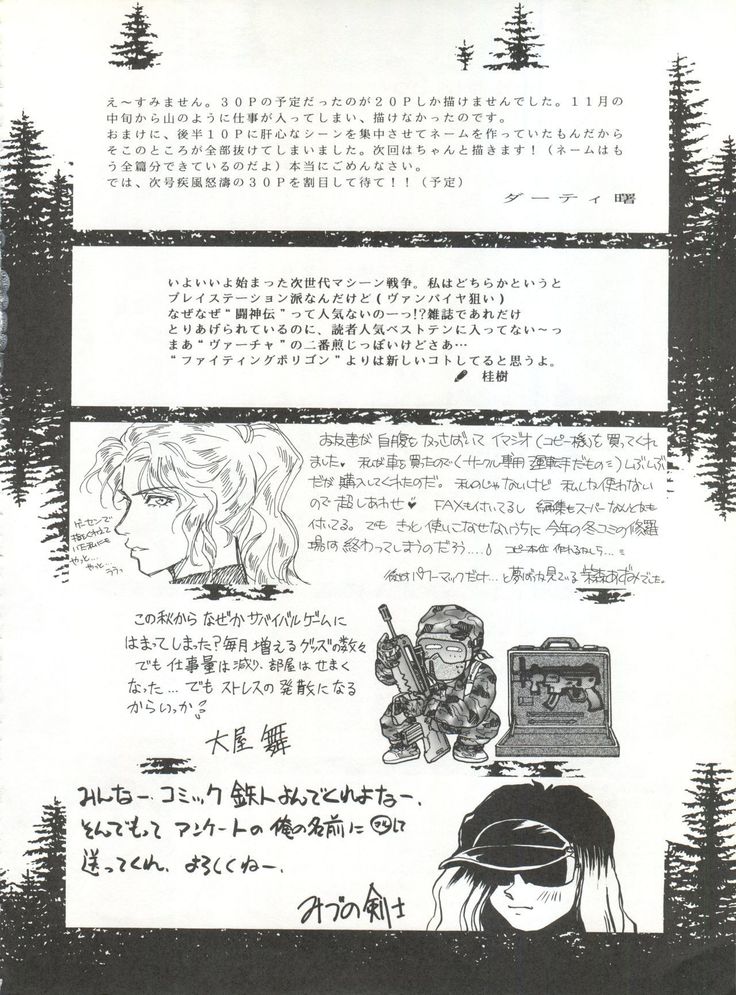 え～すみません。３０Ｐの予定だったのが２０Ｐしか描けませんでした。１１月の
中旬から山のように仕事が入ってしまい、描けなかったのです。
おまけに、後半１０Ｐに肝心なシーンを集中させてネームを作っていたもんだから
そこのところが全部抜けてしまいました。次回はちゃんと描きます！（ネームはも
う全篇分できているのだよ）本当にごめんなさい。
では、次号疾風怒濤の３０Ｐを刮目して待て！！（予定）
ダーティ曙
いよいよ始まった次世代マシーン戦争。私はどちらかというと
プレイステーション派なんだけど(ヴァンパイヤ狙い)
なぜなぜ“闘神伝”って人気ないのーっ!?雑誌であれだけ
とりあげられているのに、読者人気ベストテンに入ってない～っ
まあ“ヴァーチャ”の二番煎じっぽいけどさあ…
“ファイティングポリゴン”よりは新しいコトしてると思うよ。
桂樹
お友達が自腹をかっさばいてイマジオ(コピー機)を買ってくれ
ました♥ 私が車を買ったので(サークル専用運転手だもの)しぶしぶ
だが購入してくれたのだ。私のじゃないけど 私しか使わない
ので超しあわせ♥ FAXも付いてるし 編集もスーパーなんとかも
付いてる。でも きっと使いこなせないうちに今年の冬コミの修羅
場は終わってしまうのだろう…。
コピー本位 作れるかしら…
後はパワーマックだけ…と夢のうれ見ている あずみでした。
ゲーセンで
やっと…
やっと…
ううっ
この秋から なぜか サバイバルゲームに
はまってしまった？毎月増えるグッズの数々
でも仕事量は減り、部屋はせまく
なった…でもストレスの発散になる
からいっか
大屋 舞
みんなー、コミック鉄人よんでくれよなー、
そんでもって アンケートの俺の名前に
送ってくれ、よろしくねー、
みづの剣士